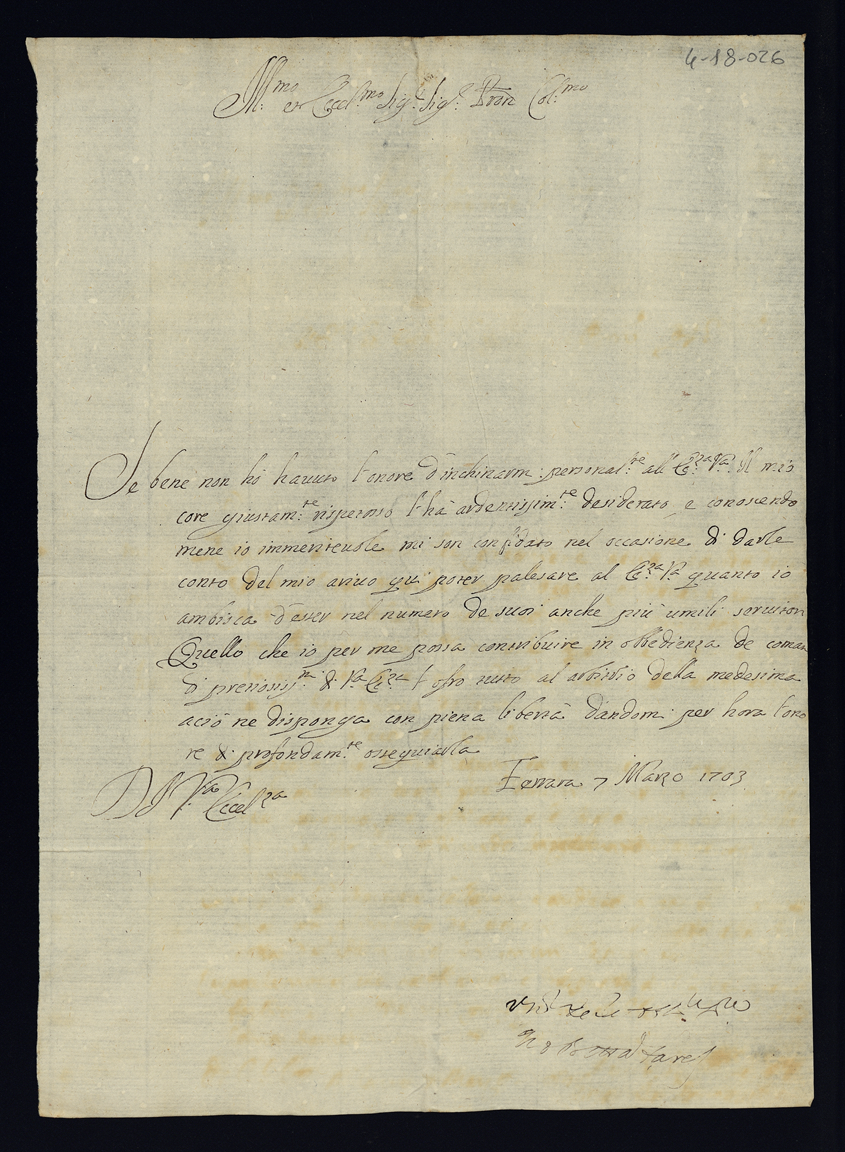 4-18-026
Ill:mo et Eccel:mo Sig:r Sig:r Pron Col:mo
Se bene non hó hauuto l'onore d'inchinarmi personal:te all'E:za V:a il mio
core giustam:te rispetoso l'hà ardentissim:te desiderato, e conoscendo
mene io immeriteuole mi son confidato nel occasione di darle
conto del mio ariuo quì poter palesare al E:za V:a quanto io
ambisca d'esser nel numero de suoi anche più umili seruitori
Quello che io per me possa contribuire in obbedienza de coman
di pretiosiss:mi di V:a E:za l'ofro tutto al arbitrio della medesima
aciò ne disponga con piena libertà dandomi per hora l'ono
re di profondam:te ossequiarla
Ferrara 7 Marzo 1703
Di V:ra Eccel:za